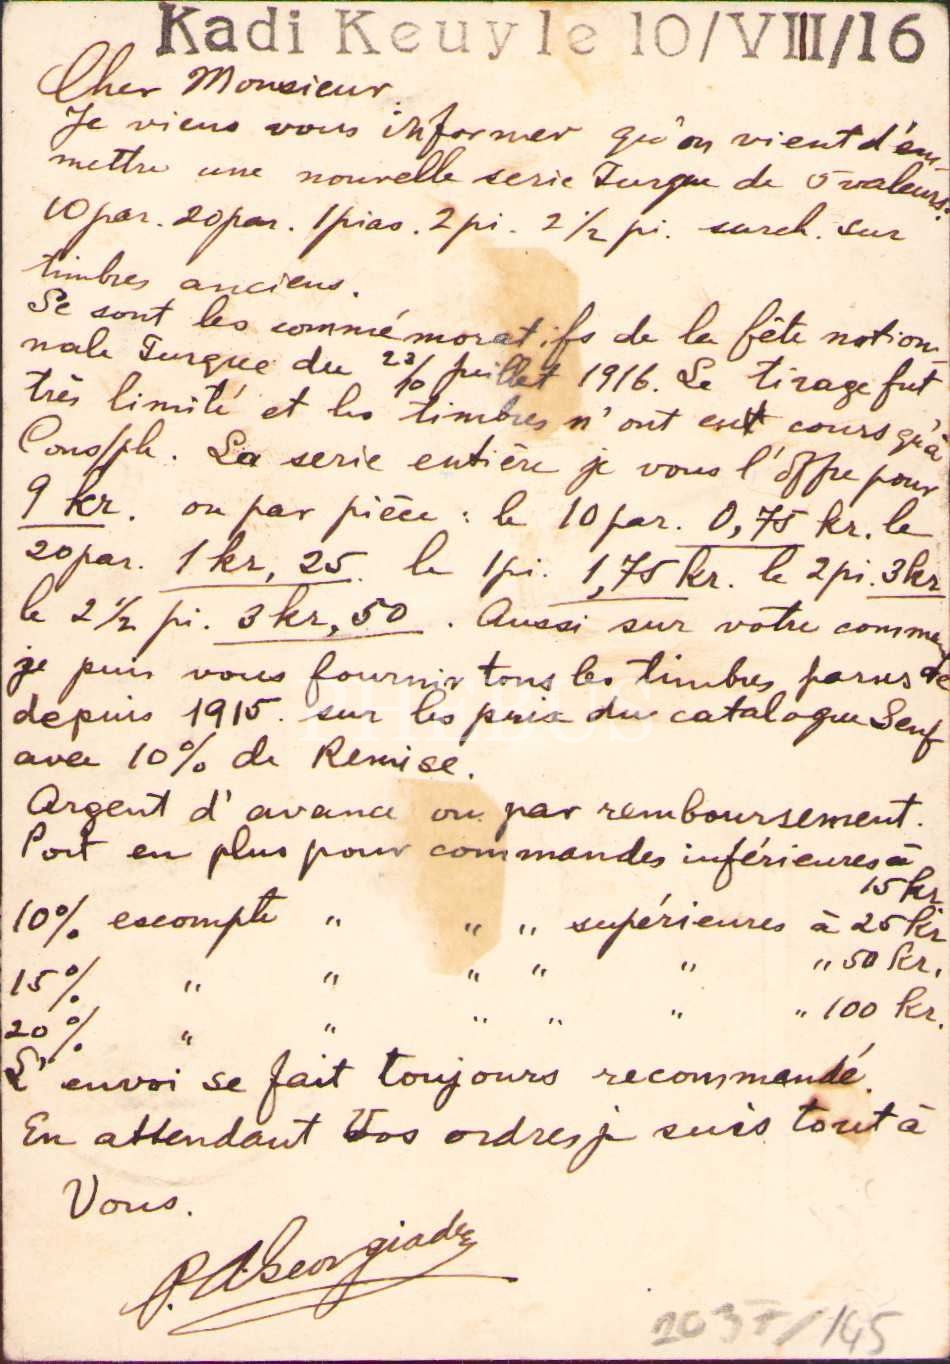 Kadi Keuy le 10/VIII/16
Cher Monsieur.
Je viens vous informer qu'on vient d'em-
mettre une nouvelle serie Turque de 5 valeurs.
10 par. 20 par. 1 pias. 2 pi. 2 1/2 pi. surch. sur
timbres anciens.
Se sont les commémoratifs de la fête nation-
nale Turque du 23/10 juillet 1916. Le tirage fut
très limité et les timbres n'ont eut cours qu'à
Cons/ple. La serie entière je vous l'offre pour
9 kr. ou par pièce : le 10 par. 0,75 kr. le
20 par. 1 kr, 25. le 1 pi. 1,75 kr. le 2 pi. 3 kr
le 2 1/2 pi. 3 kr, 50. Aussi sur votre comman
de
je puis vous fournir tous les timbres parus
depuis 1915. sur les prix du catalogue Senf
avec 10% de Remise.
Argent d'avance ou par remboursement.
Port en plus pour commandes inférieures à
15 kr
10% escompte " " " supérieures à 25 kr
15% " " " " " " 50 kr.
20% " " " " " " 100 kr.
L'envoi se fait toujours recommandé.
En attendant Vos ordres je suis tout à
Vous.
P. A. Georgiades
2037/145